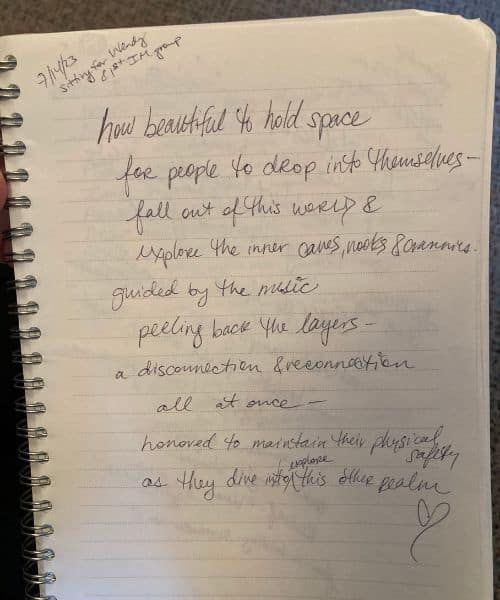 7/14/23
sitting for Wendy
& 1st IM group
how beautiful to hold space
for people to drop into themselves -
fall out of this world &
explore the inner caves, nooks & crannies.
guided by the music
peeling back the layers -
a disconnection & reconnection
all at once -
honored to maintain their physical
safety
as they dive into & explore this other realm